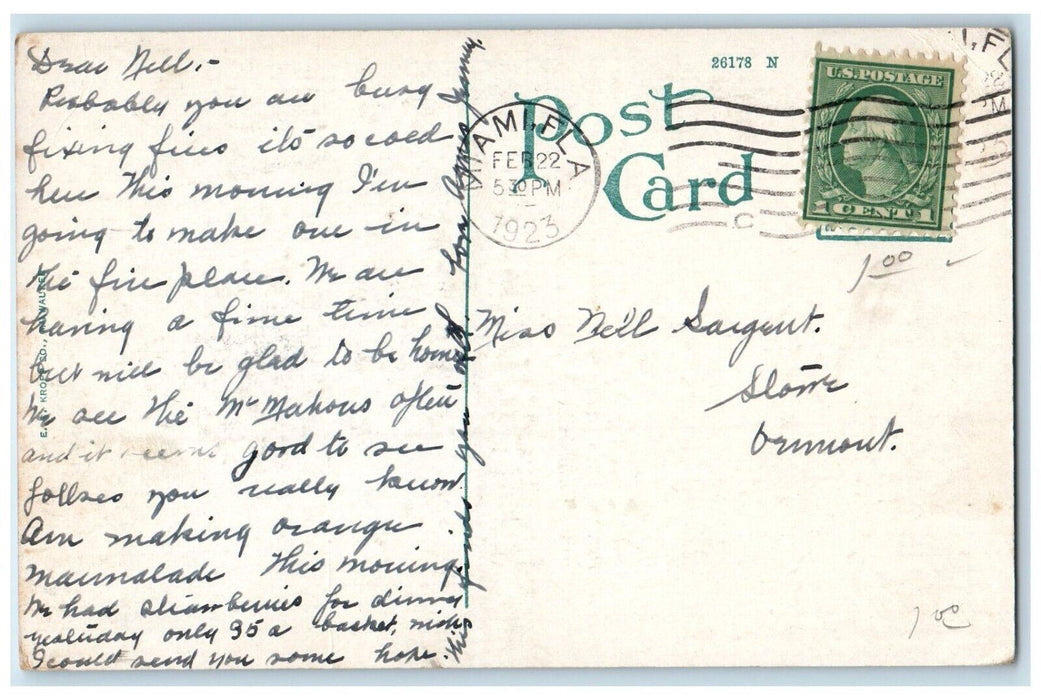 Dear Nell.-
Probably you are busy
fixing fires its so cold
here this morning I'm
going to make one in
the fire place. We are
having a fine time
but will be glad to be home
We see the McMahons often
and it seems good to see
follxes you really know
Am making orange
marmalade this morning.
We had strawberries for dinner
yesterday only 35 a basket, wish
I could send you some hope
this finds you well. Love Agnes
E. C. KROPP CO., MILWAUKEE
26178 N
Post
Card
MIAMI, FLA
FEB 22
530 PM
1923
C
U.S. POSTAGE
1 CENT 1
I, FL
PM
1.00
Miss Nell Sargent.
Stowe
Vermont.
1.00